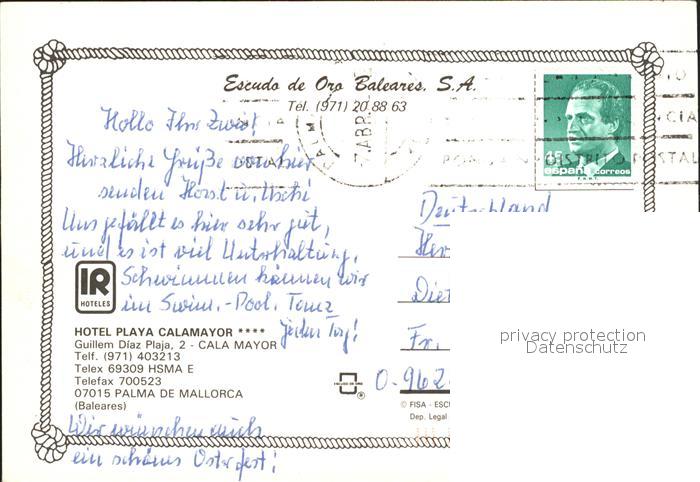 Escudo de Oro Baleares, S.A.
Tel. (971) 20 88 63
Hallo Ihr Zwei!
Herzliche Grüße von hier
senden Horst u. Uschi
Uns gefällt es hier sehr gut,
und es ist viel Unterhaltung.
Schwimmen können wir
im Swim.-Pool. Tanz
jeden Tag!
Wir wünschen euch
ein schönes Osterfest!
IR
HOTELES
HOTEL PLAYA CALAMAYOR ****
Guillem Díaz Plaja, 2 - CALA MAYOR
Telf. (971) 403213
Telex 69309 HSMA E
Telefax 700523
07015 PALMA DE MALLORCA
(Baleares)
ABR
DISTRITO POSTAL
españa correos
Deutschland
Diet
Fr.
0-962
ESCUDO DE ORO
© FISA - ESC
Dep. Legal
privacy protection
Datenschutz